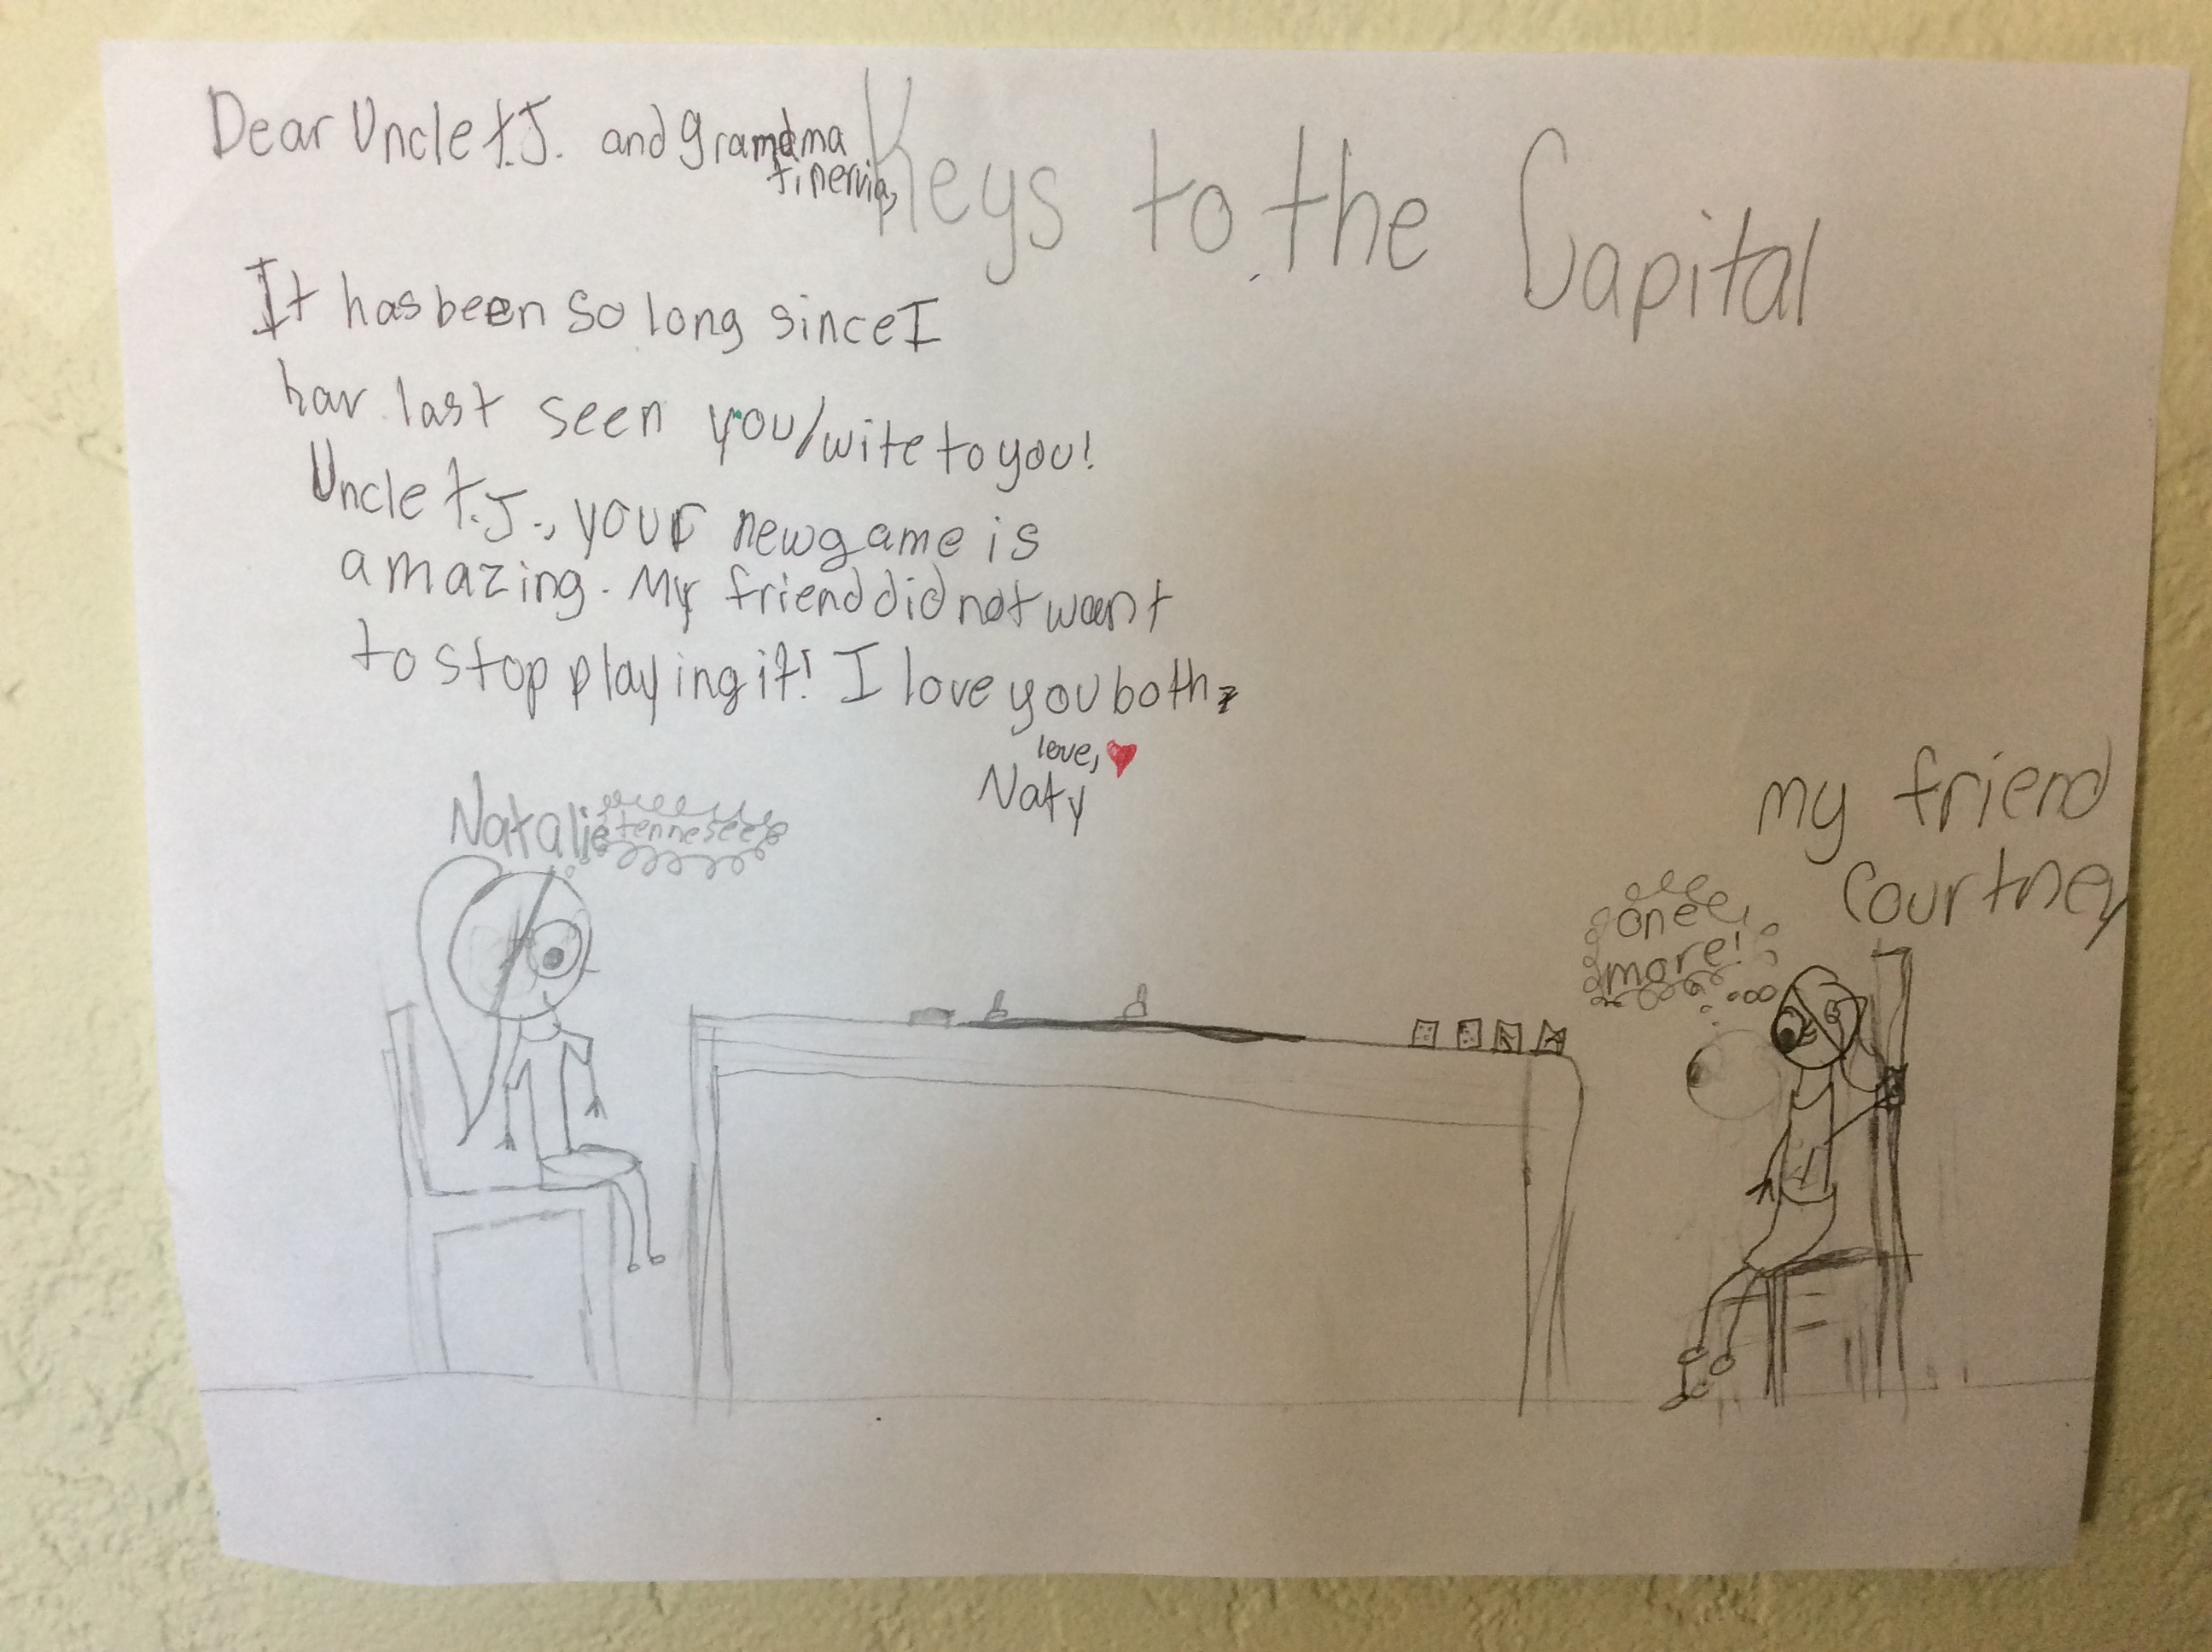 Dear Uncle t.J. and Gramdma
tinervia,
Keys to the Capital
It has been so long since I
hav last seen you/wite to you!
Uncle t.J., your new game is
amazing. My friend did not want
to stop playing it! I love you both,
love,
Naty
Natalie
tennesee
my friend
Courtney
one
more!